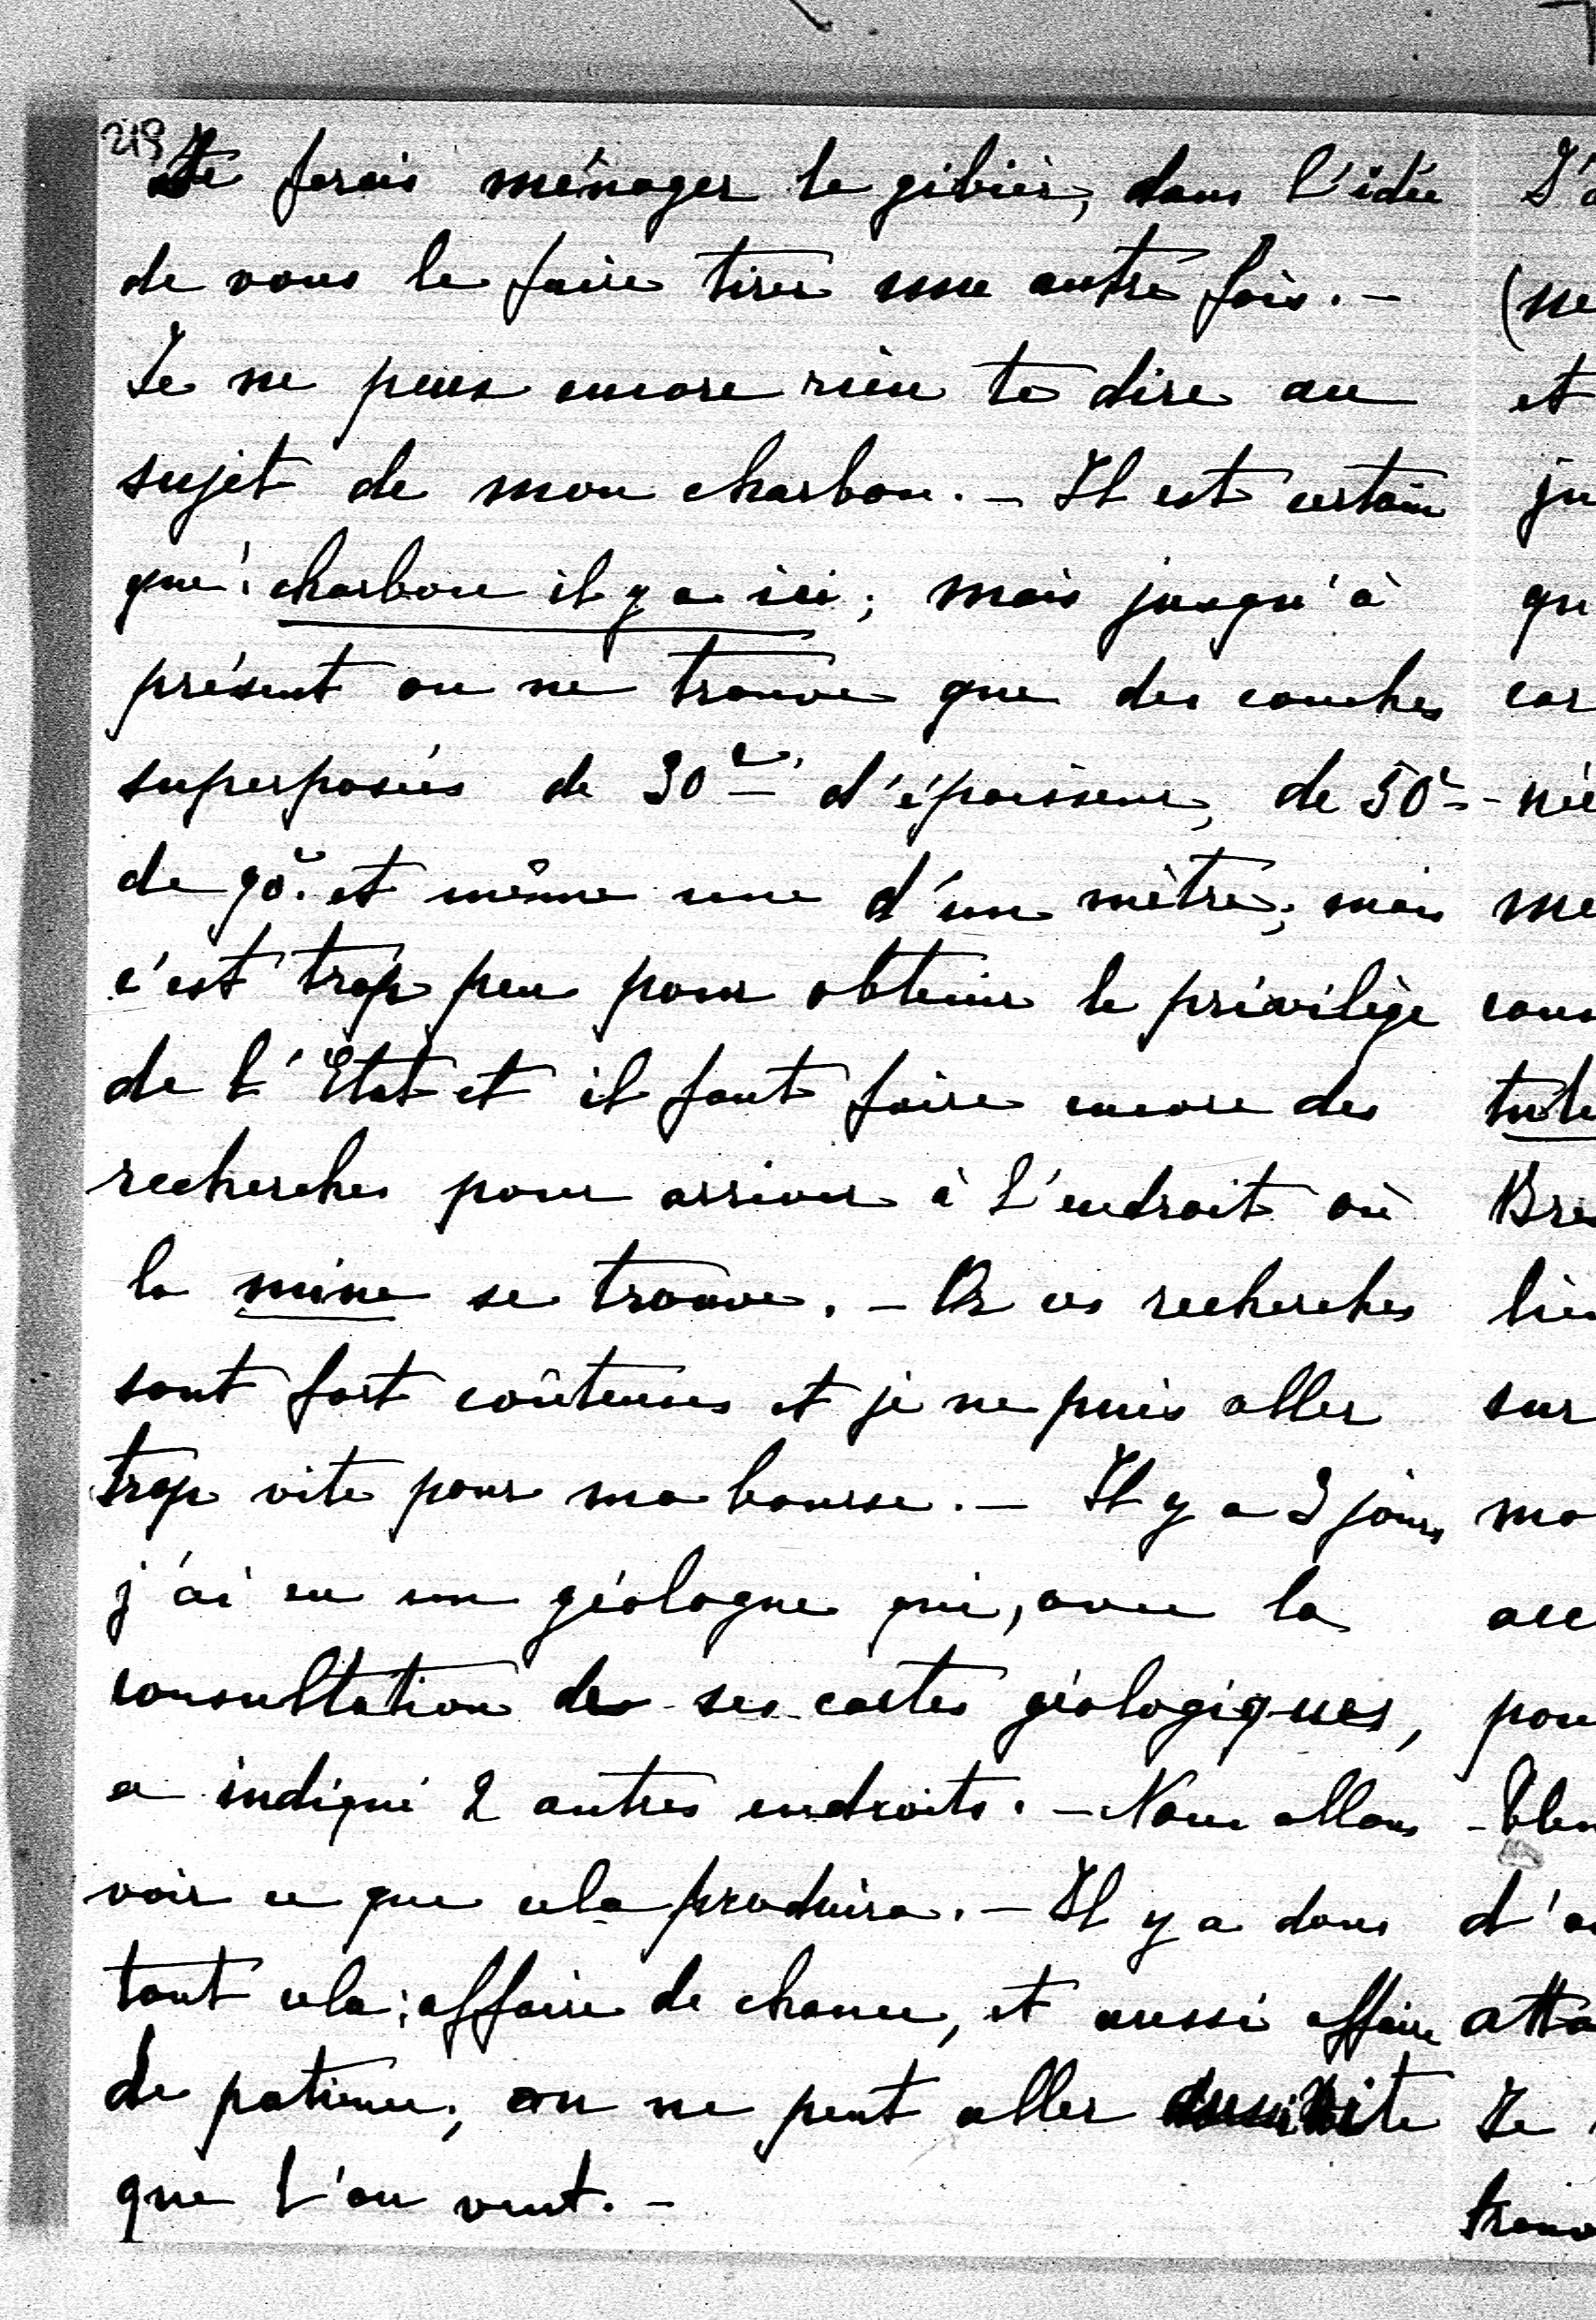 219
Je ferais ménager le gibier, dans l'idée
de vous le faire tirer une autre fois. -
Je ne peux encore rien te dire au
sujet de mon charbon. - Il est certain
que: charbon il y a ici; mais jusqu'à
présent on ne trouve que des couches
superposées de 30c. d'épaisseur, de 50c. -
de 90c. et même une d'un mètre; mais
c'est trop peu pour obtenir le privilège
de l'Etat et il faut faire encore des
recherches pour arriver à l'endroit où
la mine se trouve. - Or ces recherches
sont fort coûteuses et je ne puis aller
trop vite pour ma bourse. - Il y a 3 jours
j'ai eu un géologue qui, avec la
consultation de ses cartes géologiques,
a indiqué 2 autres endroits. - Nous allons
voir ce que cela produira. - Il y a dans
tout cela: affaire de chance, et aussi affaire
de patience; on ne peut aller aussi vite
que l'on veut. -
J'a
(ne
et
ju
qu
car
née
me
cou
tule
Bre
lie
sur
mo
acc
pou
-blem
d'a
atta
Je
trouv